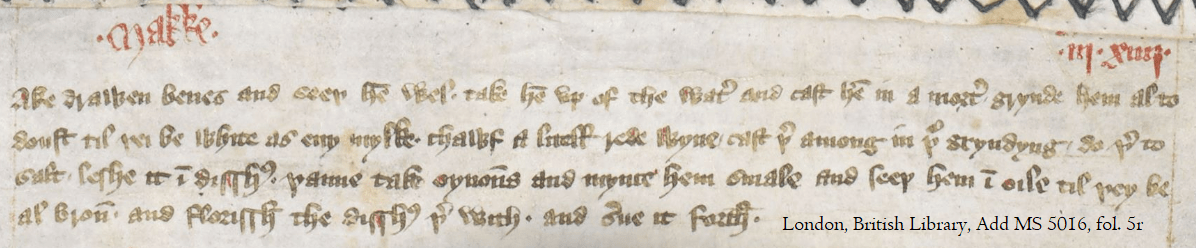 ·Makke· ·iij· xiiij·
Ake drawen benes and seeþ hē wel. take hē vp of the watˀ and cast hē in a mortˀ. grynde hem al to
doust til þei be white as eny mylke. chawf a litell rede wyne, cast þˀ among in þᵉ gryndyng, do þˀ to
salt, leshe it ī disshꝰ. þanne take oynoūs and mynce hem smale and seeþ hem ī oile til þey be
al broū. and florissh the disshꝰ þˀ with. and sˀue it forth.
London, British Library, Add MS 5016, fol. 5r